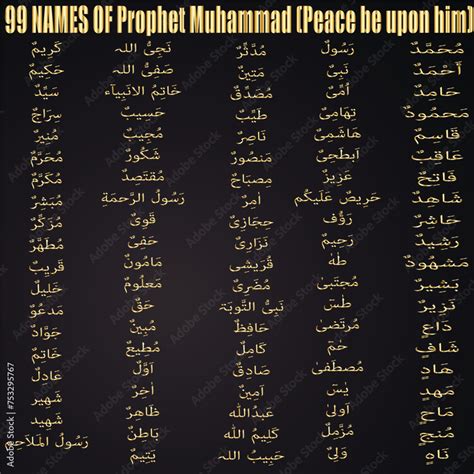 99 NAMES OF Prophet Muhammad (Peace be upon him)
مُحَمَّدٌ
اَحْمَدٌ
حَامِدٌ
مَحمُودٌ
قَاسِمٌ
عَاقِبٌ
فَاتِحٌ
شَاهِدٌ
حَاشِرٌ
رَشِيدٌ
مَشهُودٌ
بَشِيرٌ
نَزِيرٌ
دَاعٍ
شَافٍ
هَادٍ
مهدٍ
مَاحٍ
مُنجٍ
نَاهٍ
رَسُولٌ
نَبِىٌّ
اُمِّىٌّ
تِهَامِىٌّ
هَاشَمِىٌّ
اَبطَحِىٌّ
عَزِيزٌ
حَرِيصٌ عَلَيكُم
رَؤُفٌ
رَحِيمٌ
طٰهٰ
مُجتَبىٰ
طٰسٓ
مُرتَضىٰ
حٰمٓ
مُصطَفىٰ
يٰسٓ
اَولىٰ
مُزَّمِّلٌ
وَلِىٌّ
مُدَثِّرٌ
مَتِينٌ
مُصَدِّقٌ
طَيِّبٌ
نَاصِرٌ
مَنصُورٌ
مِصبَاحٌ
اٰمِرٌ
حِجَازِىٌّ
نَزَارِىٌّ
قُرَيشِىٌّ
مُضَرِىٌّ
نَبِىُّ التَّوبَة
حَافِظٌ
كَامِلٌ
صَادِقٌ
اَمِينٌ
عَبدُاللہ
كَلِيمُ اللہ
حَبِيبُ اللہ
نَجِىُّ اللہ
صَفِىُّ اللہ
خَاتِمُ الانبِيآء
حَسِيبٌ
مُجِيبٌ
شَكُورٌ
مُقتَصِدٌ
رَسُولُ الرَّحمَةِ
قَوِىٌّ
حَفِىٌّ
مَامُونٌ
مَعلُومٌ
حَقٌّ
مُبِينٌ
مُطِيعٌ
اَوَّلٌ
اٰخِرٌ
ظَاهِرٌ
بَاطِنٌ
يَتِيمٌ
كَرِيمٌ
حَكِيمٌ
سَيِّدٌ
سِرَاجٌ
مُنِيرٌ
مُحَرَّمٌ
مُكَرَّمٌ
مُبَشِّرٌ
مُزَكِّرٌ
مُطَهَّرٌ
قَرِيبٌ
خَلِيلٌ
مَدعُوٌّ
جَوَّادٌ
خَاتِمٌ
عَادِلٌ
شَهِيرٌ
شَهِيدٌ
رَسُولُ المَلَاحِمِ
Adobe Stock | #753295767